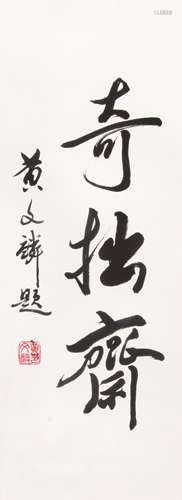 奇拙齋
黄文麟題